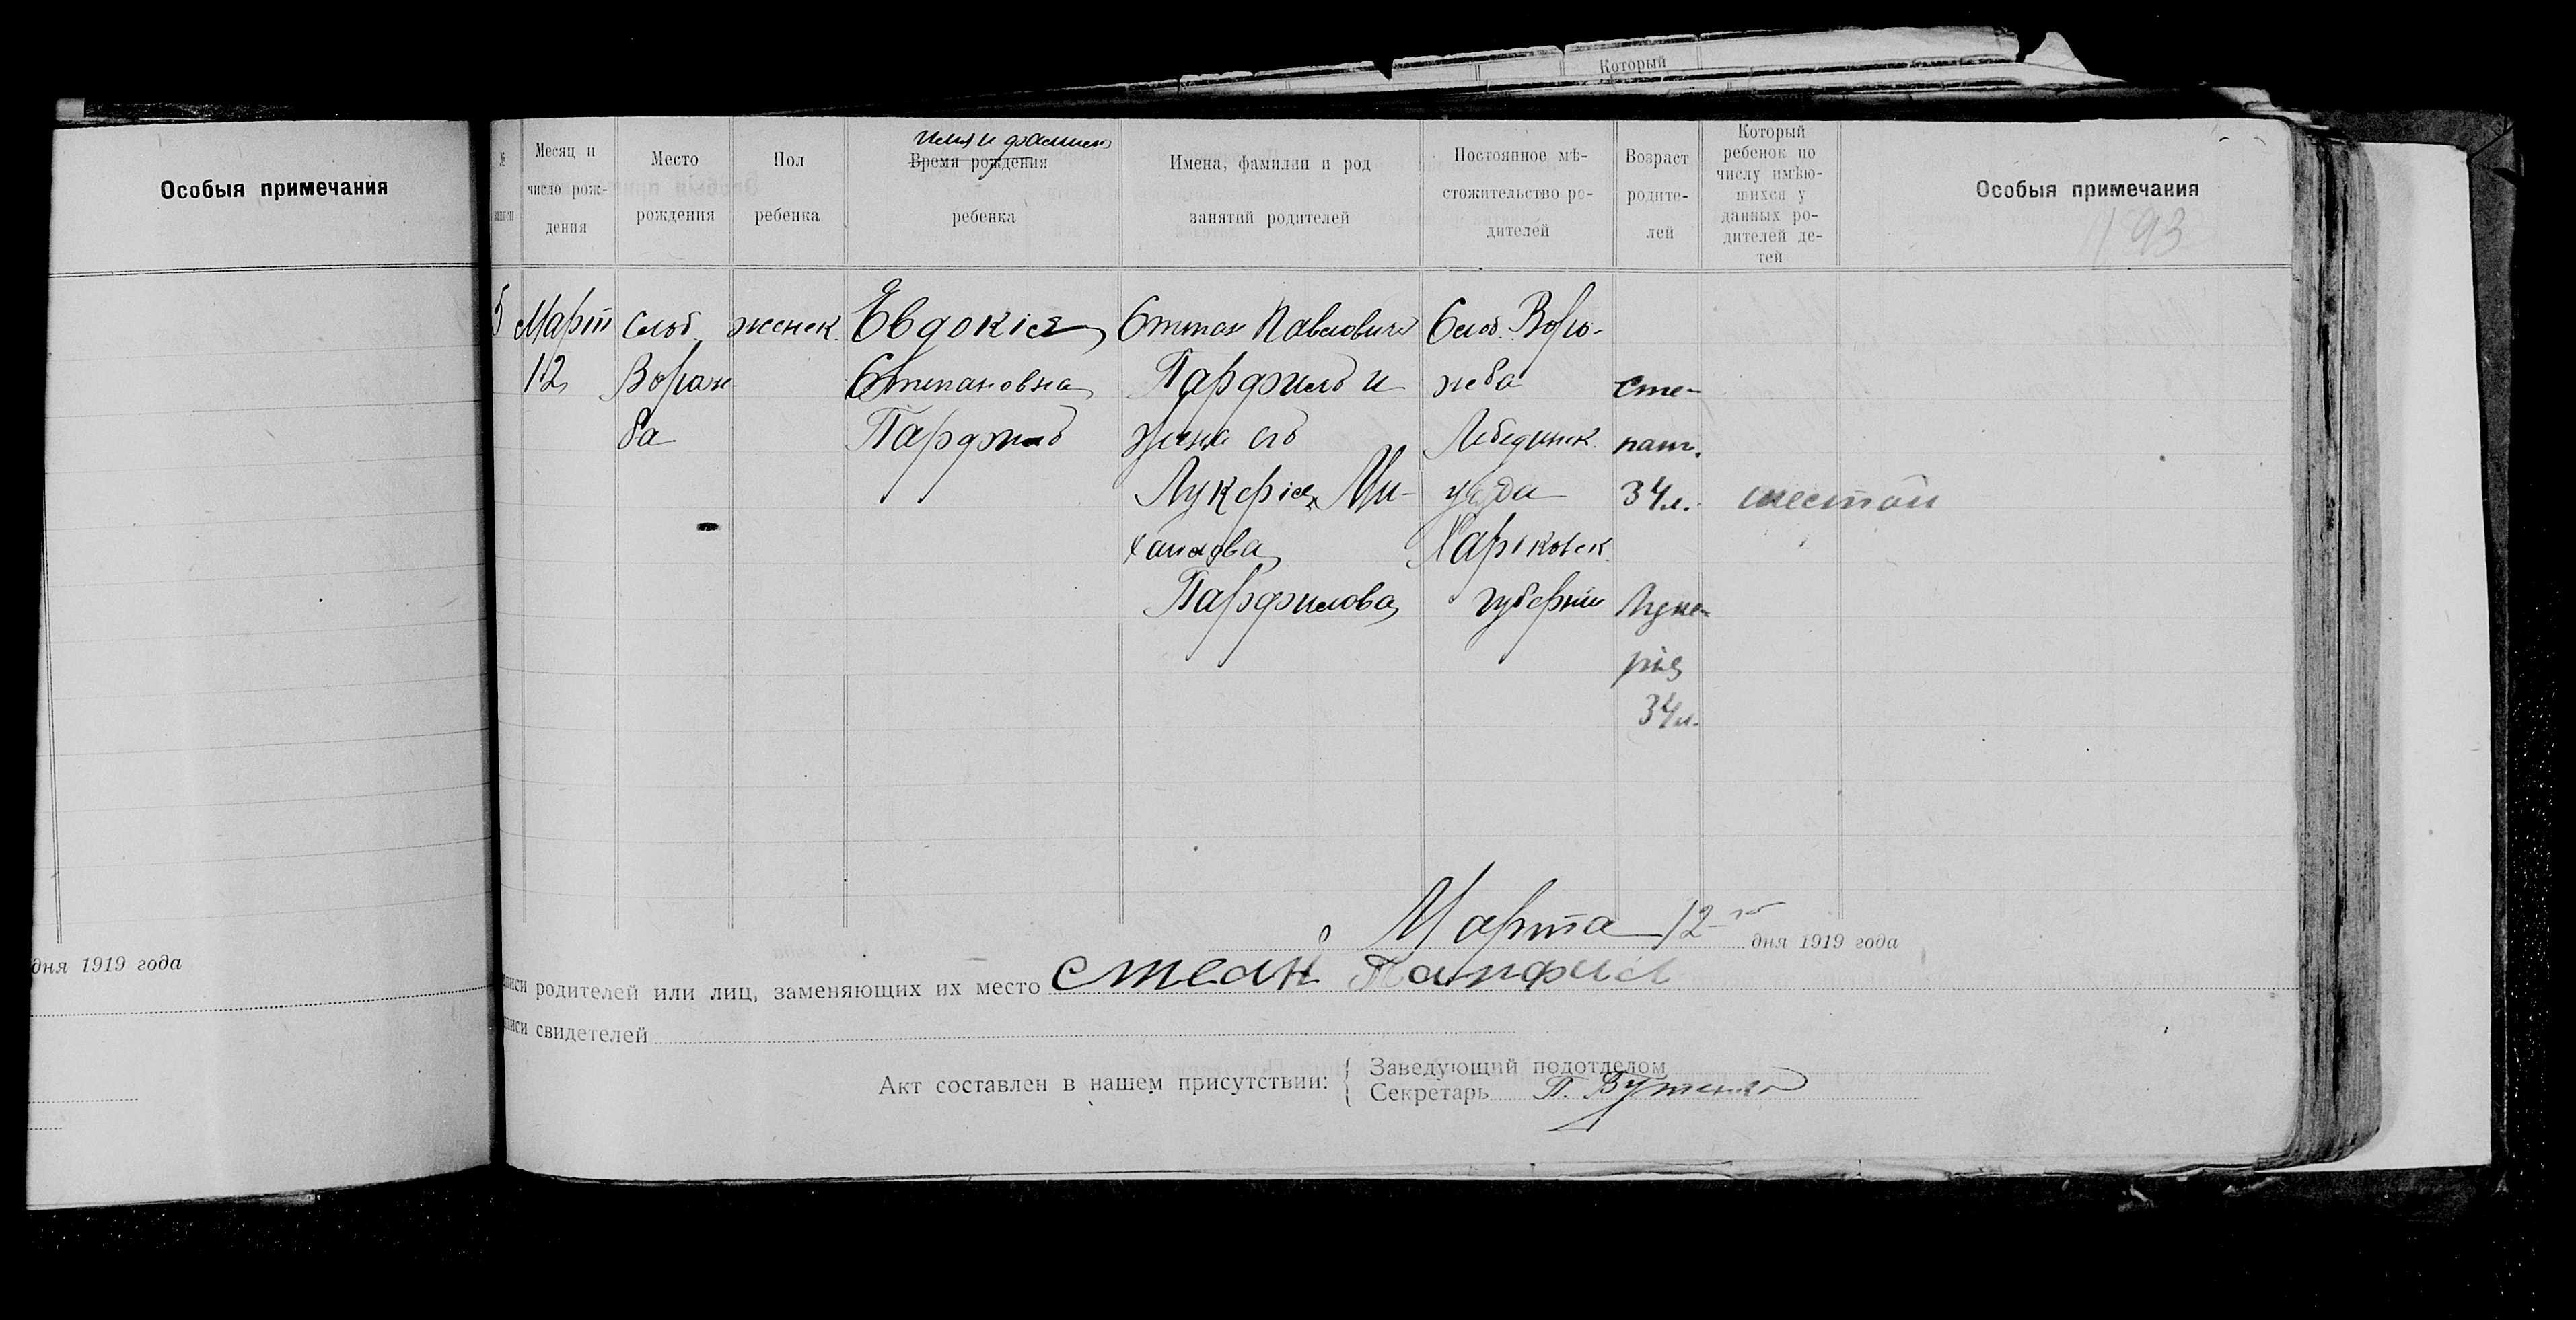 Который
Особыя примечания
дня 1919 года
№
записи
Месяц и
число рож-
дения
Место
рождения
Пол
ребенка
имя и фамилия
Время рождения
ребенка
Имена, фамилии и род
занятий родителей
Постоянное мѣ-
стожительство ро-
дителей
Возраст
родите-
лей
Который
ребенок по
числу имѣю-
щихся у
данных ро-
дителей де-
тей
Особыя примечания
193
5
Март
12
слоб.
Ворож
ба
женск.
Евдокія
Степановна
Парфилъ
Степан Павлович
Парфилъ и
жена его
Лукерія Ми-
хайлова
Парфилова
Слоб. Воро-
жба
Лебединск.
уезда
Харьковск.
губернии
Сте-
пану
34 л.
Луке-
рія
34 л.
шестой
Марта 12-го дня 1919 года
родителей или лиц, заменяющих их место Стеан Панфил
свидетелей
Акт составлен в нашем присутствии:
Заведующий подотделом
Секретарь П.